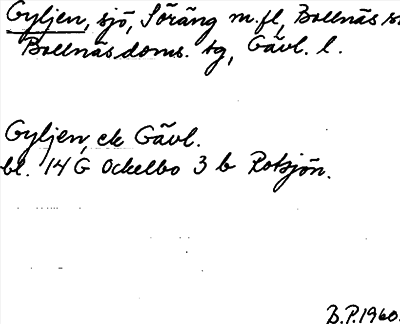 Gyljen, sjö, Söräng m.fl, Bollnäs s
Bollnäs doms. tg, Gävl. l.
Gyljen, ek Gävl.
bl. 14 G Ockelbo 3 b Rotsjön.
B.P. 1960.